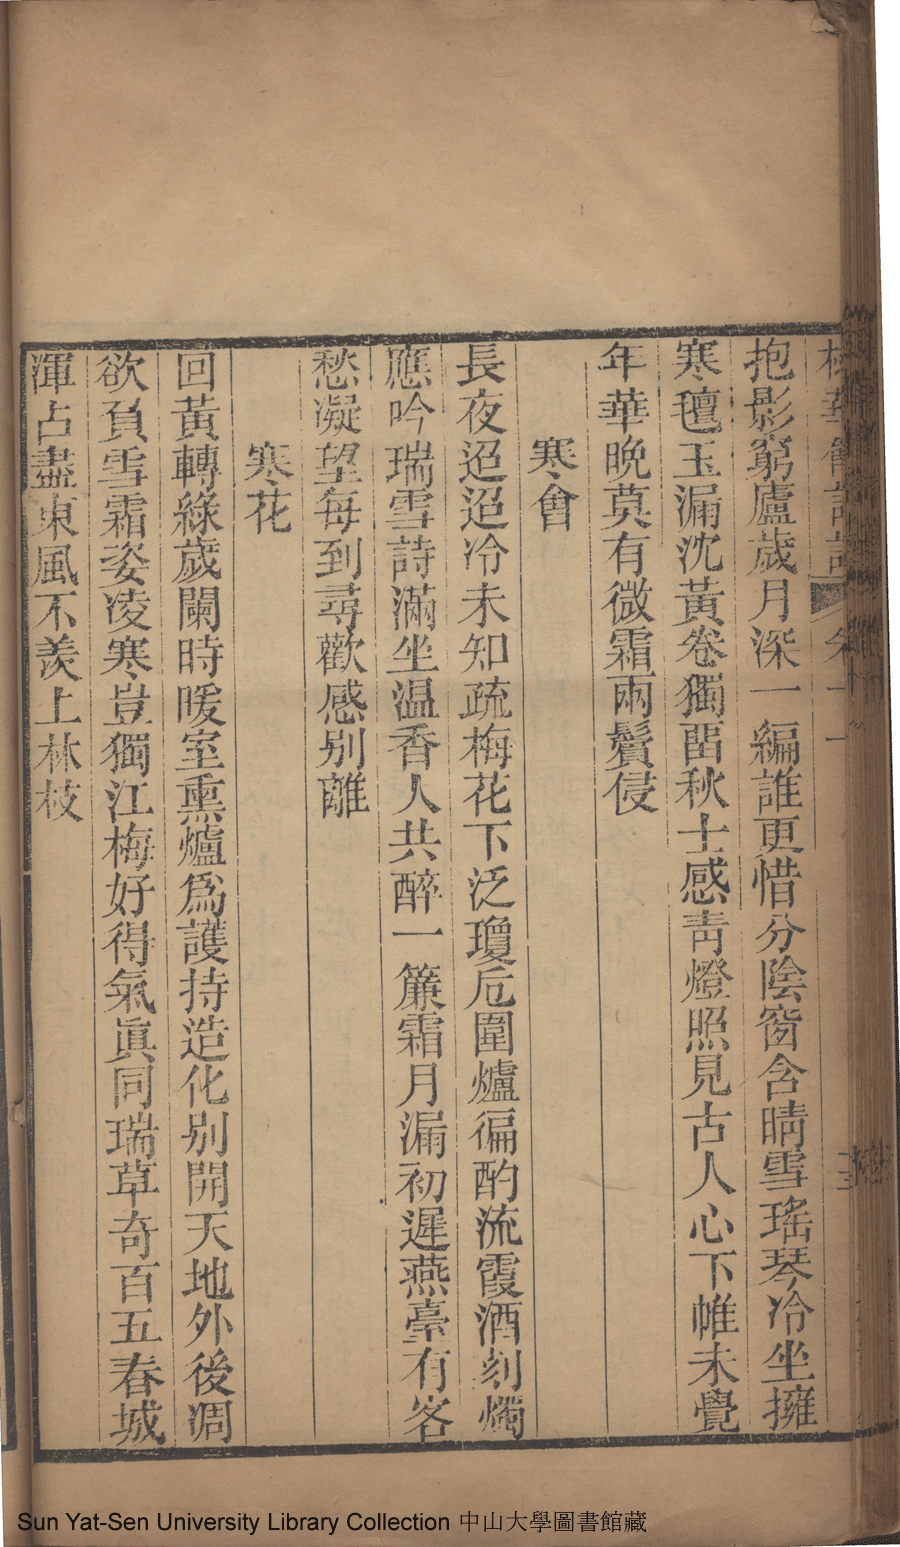 抱影窮廬歲月深一編誰更惜分陰窗含晴雪瑤琴冷坐擁
寒氊玉漏沈黃卷獨畱秋士感靑燈照見古人心下帷未覺
年華晩莫有微霜兩鬢侵
寒會
長夜迢迢冷未知疏梅花下泛瓊卮圍爐徧酌流霞酒刻燭
應吟瑞雪詩滿坐温香人共醉一簾霜月漏初遲燕臺有客
愁凝望每到尋歡感别離
寒花
回黃轉綠歲闌時暖室熏爐爲護持造化别開天地外後凋
欲負雪霜姿凌寒豈獨江梅好得氣眞同瑞草奇百五春城
渾占盡東風不羨上林枝
Sun Yat-Sen University Library Collection 中山大學圖書館藏